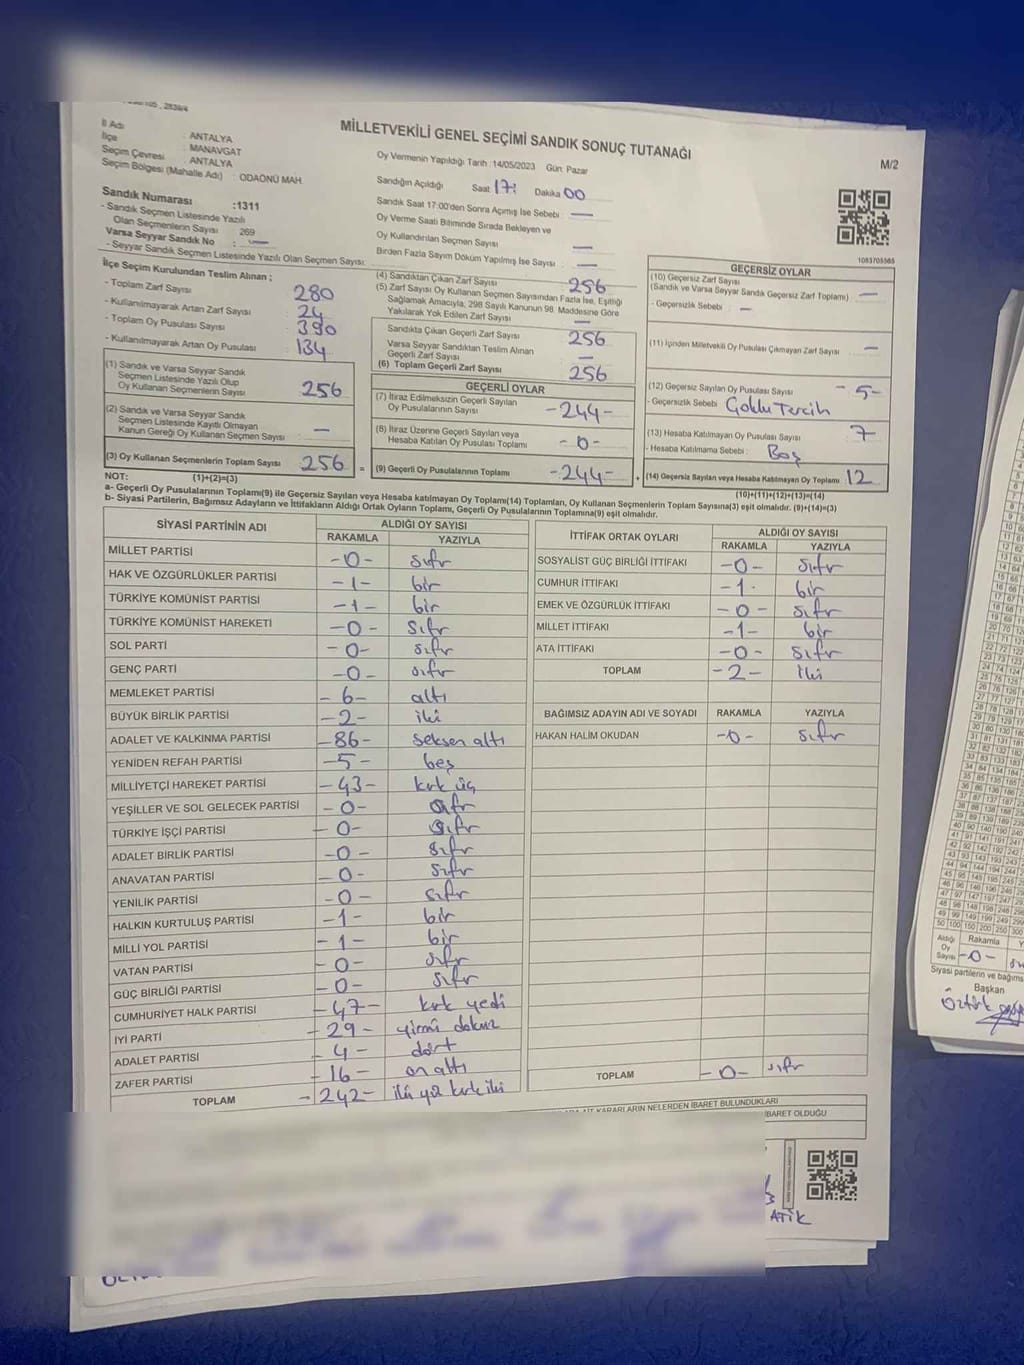 MİLLETVEKİLİ GENEL SEÇİMİ SANDIK SONUÇ TUTANAĞI
M/2
İl Adı : ANTALYA
İlçe : MANAVGAT
Seçim Çevresi : ANTALYA
Seçim Bölgesi (Mahalle Adı) : ODAÖNÜ MAH.
Sandık Numarası :1311
- Sandık Seçmen Listesinde Yazılı
Olan Seçmenlerin Sayısı 269
Varsa Seyyar Sandık No : —
- Seyyar Sandık Seçmen Listesinde Yazılı Olan Seçmen Sayısı:
Oy Vermenin Yapıldığı Tarih : 14/05/2023 Gün: Pazar
Sandığın Açıldığı Saat 17: Dakika 00
Sandık Saat 17:00'den Sonra Açımış İse Sebebi —
Oy Verme Saati Bitiminde Sırada Bekleyen ve
Oy Kullandırılan Seçmen Sayısı —
Birden Fazla Sayım Döküm Yapılmış İse Sayısı : —
1083705565
İlçe Seçim Kurulundan Teslim Alınan ;
- Toplam Zarf Sayısı : 280
- Kullanılmayarak Artan Zarf Sayısı : 24
- Toplam Oy Pusulası Sayısı : 390
- Kullanılmayarak Artan Oy Pusulası : 134
(1) Sandık ve Varsa Seyyar Sandık
Seçmen Listesinde Yazılı Olup
Oy Kullanan Seçmenlerin Sayısı 256
(2) Sandık ve Varsa Seyyar Sandık
Seçmen Listesinde Kayıtlı Olmayan
Kanun Gereği Oy Kullanan Seçmen Sayısı : —
(3) Oy Kullanan Seçmenlerin Toplam Sayısı 256
(4) Sandıktan Çıkan Zarf Sayısı : 256
(5) Zarf Sayısı Oy Kullanan Seçmen Sayısından Fazla İse, Eşitliği
Sağlamak Amacıyla, 298 Sayılı Kanunun 98. Maddesine Göre
Yakılarak Yok Edilen Zarf Sayısı : —
Sandıkta Çıkan Geçerli Zarf Sayısı : 256
Varsa Seyyar Sandıktan Teslim Alınan
Geçerli Zarf Sayısı : —
(6) Toplam Geçerli Zarf Sayısı : 256
GEÇERLİ OYLAR
(7) İtiraz Edilmeksizin Geçerli Sayılan
Oy Pusulalarının Sayısı -244-
(8) İtiraz Üzerine Geçerli Sayılan veya
Hesaba Katılan Oy Pusulası Toplamı -0-
= (9) Geçerli Oy Pusulalarının Toplamı -244-
GEÇERSİZ OYLAR
(10) Geçersiz Zarf Sayısı
(Sandık ve Varsa Seyyar Sandık Geçersiz Zarf Toplamı) —
- Geçersizlik Sebebi : —
(11) İçinden Milletvekili Oy Pusulası Çıkmayan Zarf Sayısı : —
(12) Geçersiz Sayılan Oy Pusulası Sayısı : -5-
- Geçersizlik Sebebi Çoklu Tercih
(13) Hesaba Katılmayan Oy Pusulası Sayısı : 7
- Hesaba Katılmama Sebebi : Boş
+ (14) Geçersiz Sayılan veya Hesaba Katılmayan Oy Toplamı 12
NOT: (1)+(2)=(3)
(10)+(11)+(12)+(13)=(14)
a- Geçerli Oy Pusulalarının Toplamı(9) ile Geçersiz Sayılan veya Hesaba katılmayan Oy Toplamı(14) Toplamları, Oy Kullanan Seçmenlerin Toplam Sayısına(3) eşit olmalıdır. (9)+(14)=(3)
b- Siyasi Partilerin, Bağımsız Adayların ve İttifakların Aldığı Ortak Oyların Toplamı, Geçerli Oy Pusulalarının Toplamına(9) eşit olmalıdır.
SİYASİ PARTİNİN ADI ALDIĞI OY SAYISI
RAKAMLA YAZIYLA
MİLLET PARTİSİ -0- sıfır
HAK VE ÖZGÜRLÜKLER PARTİSİ -1- bir
TÜRKİYE KOMÜNİST PARTİSİ -1- bir
TÜRKİYE KOMÜNİST HAREKETİ -0- sıfır
SOL PARTİ -0- sıfır
GENÇ PARTİ -0- sıfır
MEMLEKET PARTİSİ -6- altı
BÜYÜK BİRLİK PARTİSİ -2- iki
ADALET VE KALKINMA PARTİSİ -86- seksen altı
YENİDEN REFAH PARTİSİ -5- beş
MİLLİYETÇİ HAREKET PARTİSİ -43- kırk üç
YEŞİLLER VE SOL GELECEK PARTİSİ -0- sıfır
TÜRKİYE İŞÇİ PARTİSİ -0- sıfır
ADALET BİRLİK PARTİSİ -0- sıfır
ANAVATAN PARTİSİ -0- sıfır
YENİLİK PARTİSİ -0- sıfır
HALKIN KURTULUŞ PARTİSİ -1- bir
MİLLİ YOL PARTİSİ -1- bir
VATAN PARTİSİ -0- sıfır
GÜÇ BİRLİĞİ PARTİSİ -0- sıfır
CUMHURİYET HALK PARTİSİ -47- kırk yedi
İYİ PARTİ -29- yirmi dokuz
ADALET PARTİSİ -4- dört
ZAFER PARTİSİ -16- on altı
TOPLAM -242- iki yüz kırk iki
İTTİFAK ORTAK OYLARI ALDIĞI OY SAYISI
RAKAMLA YAZIYLA
SOSYALİST GÜÇ BİRLİĞİ İTTİFAKI -0- sıfır
CUMHUR İTTİFAKI -1- bir
EMEK VE ÖZGÜRLÜK İTTİFAKI -0- sıfır
MİLLET İTTİFAKI -1- bir
ATA İTTİFAKI -0- sıfır
TOPLAM -2- iki
BAĞIMSIZ ADAYIN ADI VE SOYADI RAKAMLA YAZIYLA
HAKAN HALİM OKUDAN -0- sıfır
TOPLAM -0- sıfır
KARARLARIN NELERDEN İBARET BULUNDUKLARI
İBARET OLDUĞU
ATİK
Aldığı Oy Sayısı Rakamla
-0-
Siyasi partilerin ve bağıms
Başkan